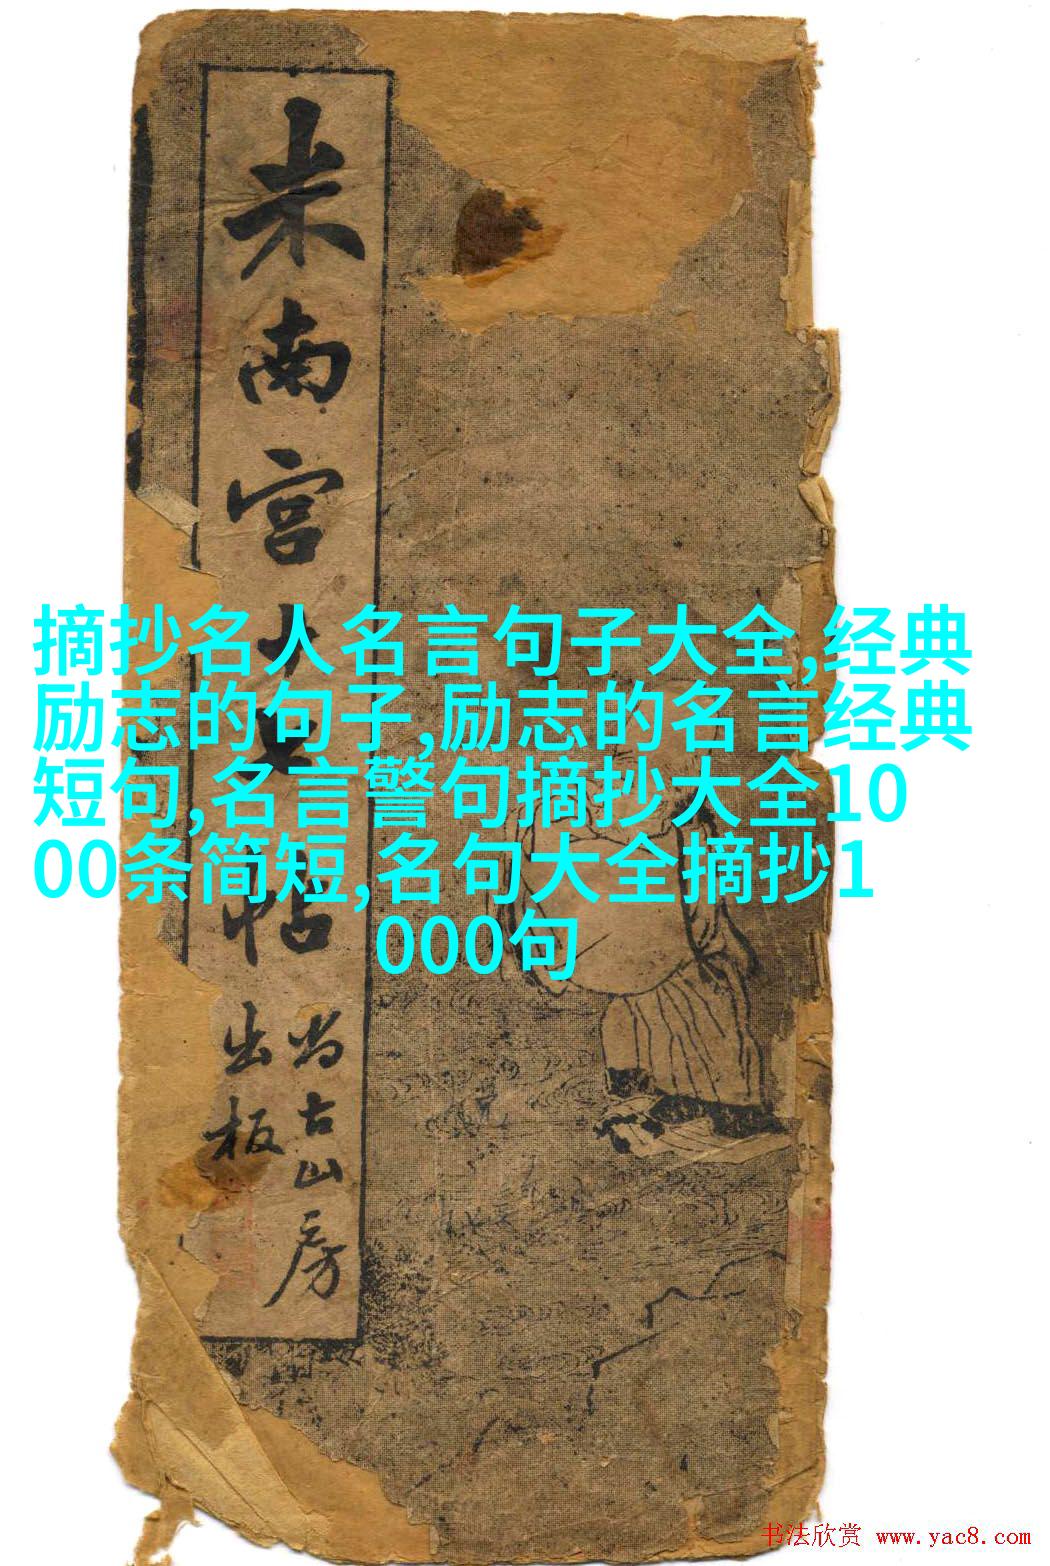 米南宫大帖
尚古山房
出板
摘抄名人名言句子大全,经典
励志的句子,励志的名言经典
短句,名言警句摘抄大全10
00条简短,名句大全摘抄1
000句
书法欣赏 www.yac8.com